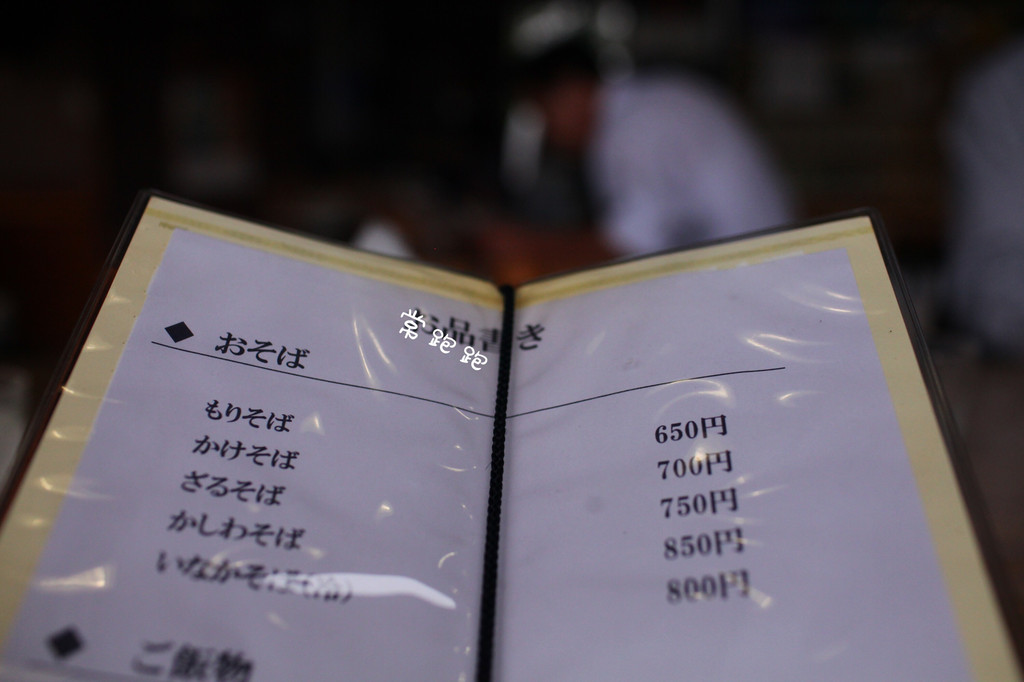 お品書き
常跑跑
◆ おそば
もりそば 650円
かけそば 700円
ざるそば 750円
かしわそば 850円
いなかそば(冷) 800円
◆ ご飯物